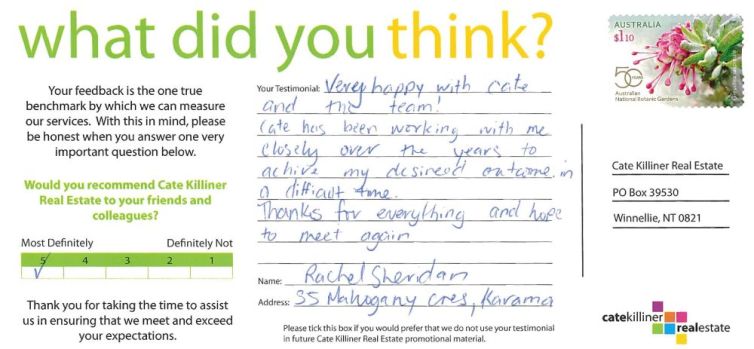 what did you think?
Your feedback is the one true
benchmark by which we can measure
our services. With this in mind, please
be honest when you answer one very
important question below.
Would you recommend Cate Killiner
Real Estate to your friends and
colleagues?
Most Definitely Definitely Not
5 4 3 2 1
Thank you for taking the time to assist
us in ensuring that we meet and exceed
your expectations.
Your Testimonial: Verey happy with cate
and the team!
Cate has been working with me
closely over the years to
achive my desireed outcome in
a difficult time.
Thanks for everything and hope
to meet again
Name: Rachel Sheridan
Address: 35 Mahogany cres, Karama
Please tick this box if you would prefer that we do not use your testimonial
in future Cate Killiner Real Estate promotional material.
AUSTRALIA
$1.10
50 YEARS
Australian
National Botanic Gardens
Cate Killiner Real Estate
PO Box 39530
Winnellie, NT 0821
catekilliner
realestate